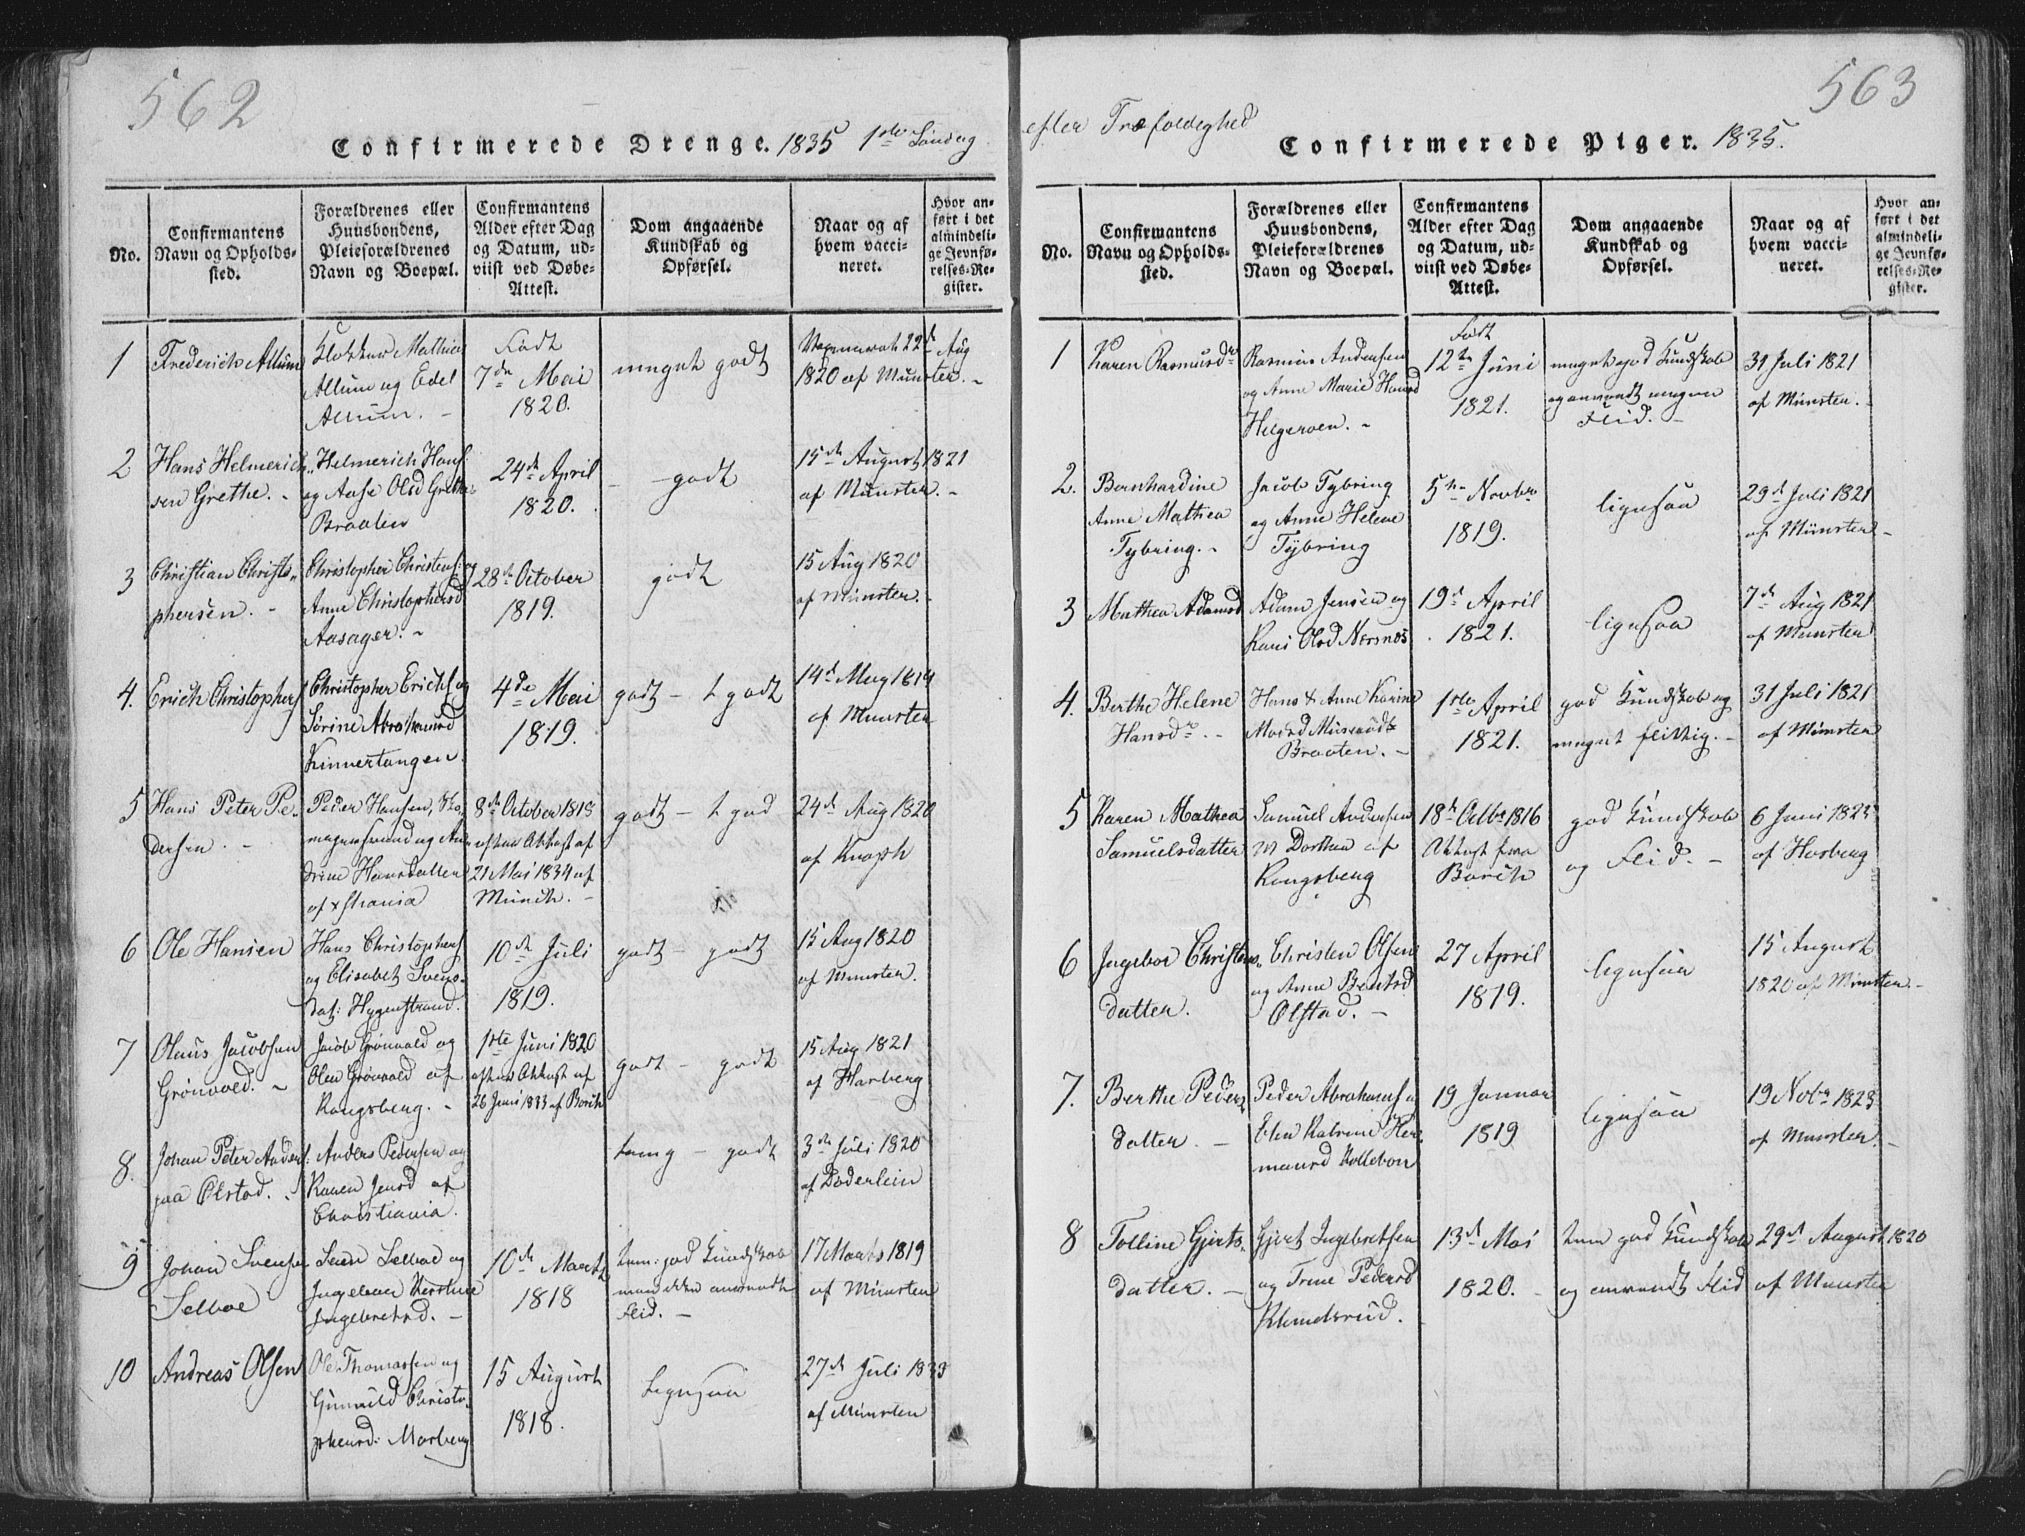 562
Confirmerede Drenge. 1835 1ste Söndag
No.
Confirmantens
Navn og Opholds-
sted.
Forældrenes eller
Huusbondens,
Pleieforældrenes
Navn og Boepæl.
Confirmantens
Alder efter Dag
og Datum, ud-
viist ved Døbe-
Attest.
Dom angaaende
Kundskab og
Opførsel.
Naar og af
hvem vacci-
neret.
Hvor an-
ført i det
almindeli-
ge Jevnfø-
relses-Re-
gister.
1
Frederich Allum
Klokker Mathias
Allum og Edel
Allum. -
Födt
7de Mai
1820.
meget godt
22d Aug
1820 af Münster. -
2
Hans Helmerich
sen Grethe. -
Helmerich Hans.
og Aase Olsd Grethe
Braaten
24de April
1820.
godt
15de August 1821
af Münster. -
3
Christian Christo„
phersen. -
Christopher Christens: og
Anne Christophersd
Aasager. -
28de October
1819.
godt
15 Aug 1820
af Münster. -
4.
Erich Christophers
Christopher Erichs og
Sörine Abrahamsd
Kinnertangen.
4de Mai
1819.
godt - t godt
14d Aug 1819
af Munster
5
Hans Peter Pe-
dersen. -
Peder Hansen, Sko
magersvend og An
drine Hansdatter
af Xstiania
8de October 1818
efter Attest af
21 Mai 1834 af
Münch. -
godt - t god
24de Aug 1820
af Knoph
6
Ole Hansen
Hans Christophers
og Elisabet Svens-
dat: Hyggenstrand.
10de Juli
1819.
godt - godt
15 Aug 1820
af Münster.
7
Olaus Jacobsen
Grönvold. -
Jacob Grönvold og
Olea Grönvold af
Kongsberg. -
1ste Juni 1820
efter Attest af
26 Juni 1833 af Borch
godt - godt
15 Aug 1821
af Harberg
8.
Johan Peter Anders:
paa Ølstad. -
Anders Pedersen og
Karen Jensd af
Christiania.
temg - godt
3de Juli 1820
af Döderlein
9
Johan Svensen
Selboe
Svend Selboe og
Ingeboer Kirstine
Ingebretsd. -
10de Marts
1818
tem: god Kundskab
men ikke anvendt
Flid. -
17 Marts 1819
af Münster
10
Andreas Olsen
Ole Thomassen og
Gunnild Christo„
phersd: Morberg
15 August
1818.
ligesaa
27de Juli 1833
af Münster
563
efter Træfoldighed
Confirmerede Piger. 1835.
No.
Confirmantens
Navn og Opholds-
sted.
Forældrenes eller
Huusbondens,
Pleieforældrenes
Navn og Boepæl.
Confirmantens
Alder efter Dag
og Datum, ud-
viist ved Døbe-
Attest.
Dom angaaende
Kundskab og
Opførsel.
Naar og af
hvem vacci-
neret.
Hvor an-
ført i det
almindeli-
ge Jevnfø-
relses-Re-
gister.
1
Karen Rasmusdr
Rasmus Andersen
og Anne Marie Hansd
Helgeroen. -
Födt
12te Juni
1821.
meget god Kundskab
og anvendt megen
Flid. -
31 Juli 1821
af Münster. -
2.
Bernhardine
Anne Mathea
Tybring. -
Jacob Tybring
og Anne Helene
Tÿbring
5te Novbr
1819.
ligesaa
29d Juli 1821
af Münster -
3
Mathea Adamsd
Adam Jensen og
Kari Olsd Nærsnes
19d April
1821.
ligesaa
7de Aug 1821
af Münster
4.
Berthe Helene
Hansdr. -
Hans & Anne Karine
Madsd
Braaten. -
1ste April
1821.
god Kundskab og
meget flittig. -
31 Juli 1821
af Münster
5
Karen Mathea
Samuelsdatter
Samuel Andersen
og Dorthea af
Kongsberg
18de Octbr 1816
Attest fra
Borch
god Kundskab
og Flid. -
6 Juni 1823
af Harberg
6
Ingeboe Christens„
datter.
Christen Olsen
og Anne Bentsd
Olstad. -
27 April
1819.
ligesaa
15 August
1820 af Münster -
7.
Berthe Peders
datter -
Peder Abrahams o
Elen Katrine Her
mansd Kollebon
19 Januar
1819
ligesaa
19 Novbr 1823
af Münster -
8
Tolline Gjerts„
datter. -
Gjert Ingebretsen
og Trine Pedersd
Klemetsrud.
13d Mai
1820. -
tem god Kundskab
og anvendt Flid
29d August 1820
af Munster